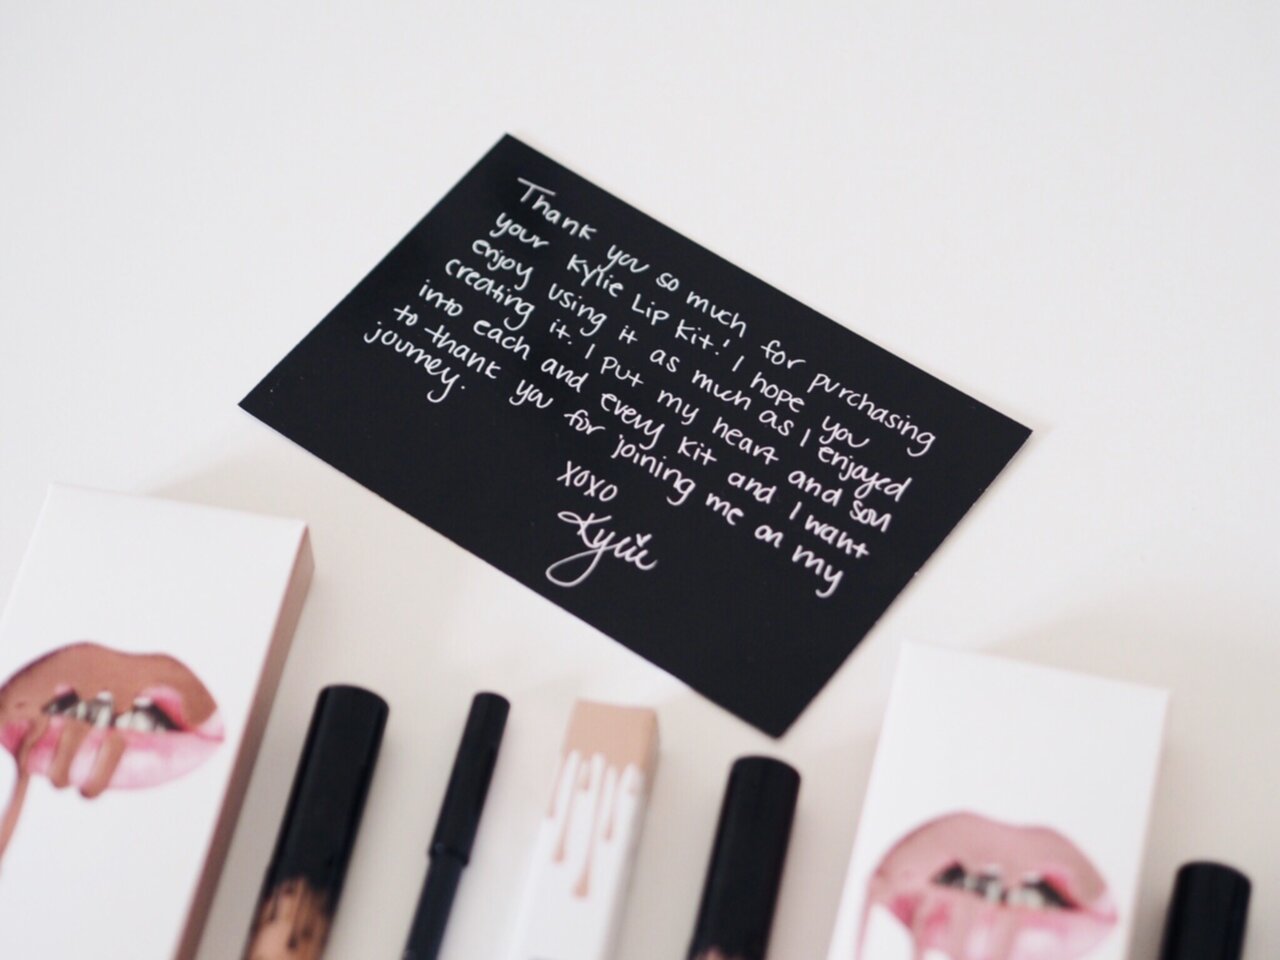 Thank you so much for purchasing
your Kylie Lip Kit! I hope you
enjoy using it as much as I enjoyed
creating it. I put my heart and soul
into each and every kit and I want
to thank you for joining me on my
journey.
xoxo
Kylie